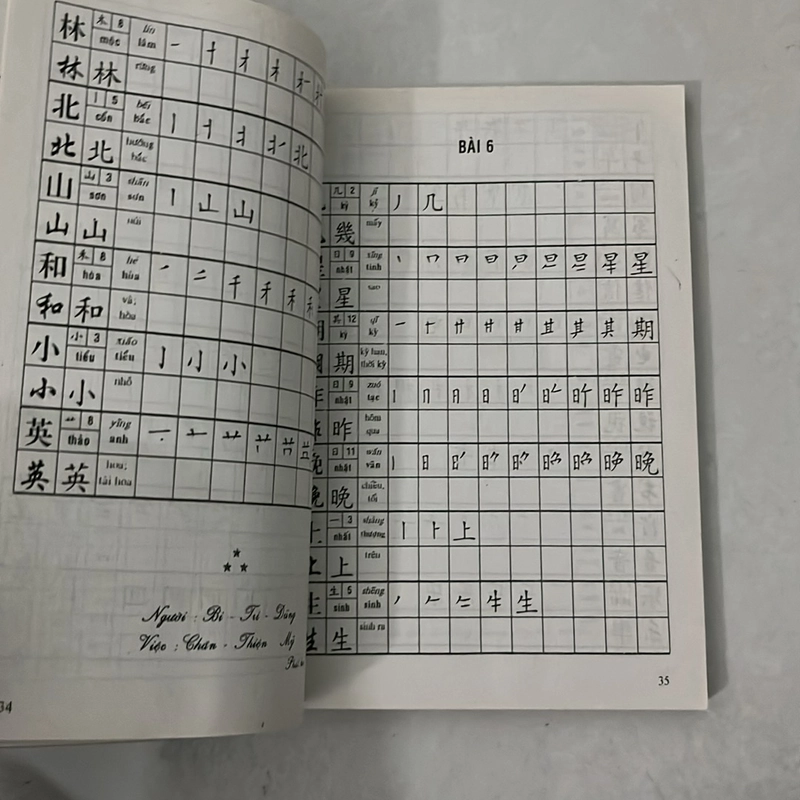 林 木 8 lín
mộc lâm 一 十 才 木 木一
林 林 rừng
北 丨 5 běi
cổn bắc 丨 十 扌 北
北 北 hướng
bắc
山 山 3 shān
sơn sơn 丨 山 山
山 山 núi
和 禾 8 hé
hòa hòa 一 二 千 禾 禾 禾
和 和 và;
hòa
小 小 3 xiǎo
tiểu tiểu 亅 小
小 小 nhỏ
英 艹 8 yīng
thảo anh 一 艹
英 英 hoa;
tài hoa
Người : Bi - Trí - Dũng
Việc : Chân - Thiện - Mỹ
34
BÀI 6
几 2 jǐ
kỷ kỷ 丿 几
幾 mấy
星 日 9 xīng
nhật tinh 丨 冂 日 日 旦 星
星 sao
期 其 12 qī
kỳ kỳ 一 十 廾 其 期
期 kỳ hạn,
thời kỳ
昨 日 9 zuó
nhật tạc 丨 冂 日 昨 昨
昨 hôm
qua
晚 日 11 wǎn
nhật vãn 丨 日 晚
晚 晚 chiều,
tối
上 一 3 shàng
nhất thượng 丨 卜 上
上 上 trên
生 生 5 shēng
sinh sinh 丿 𠂉 牛 生
生 生 sinh ra
35